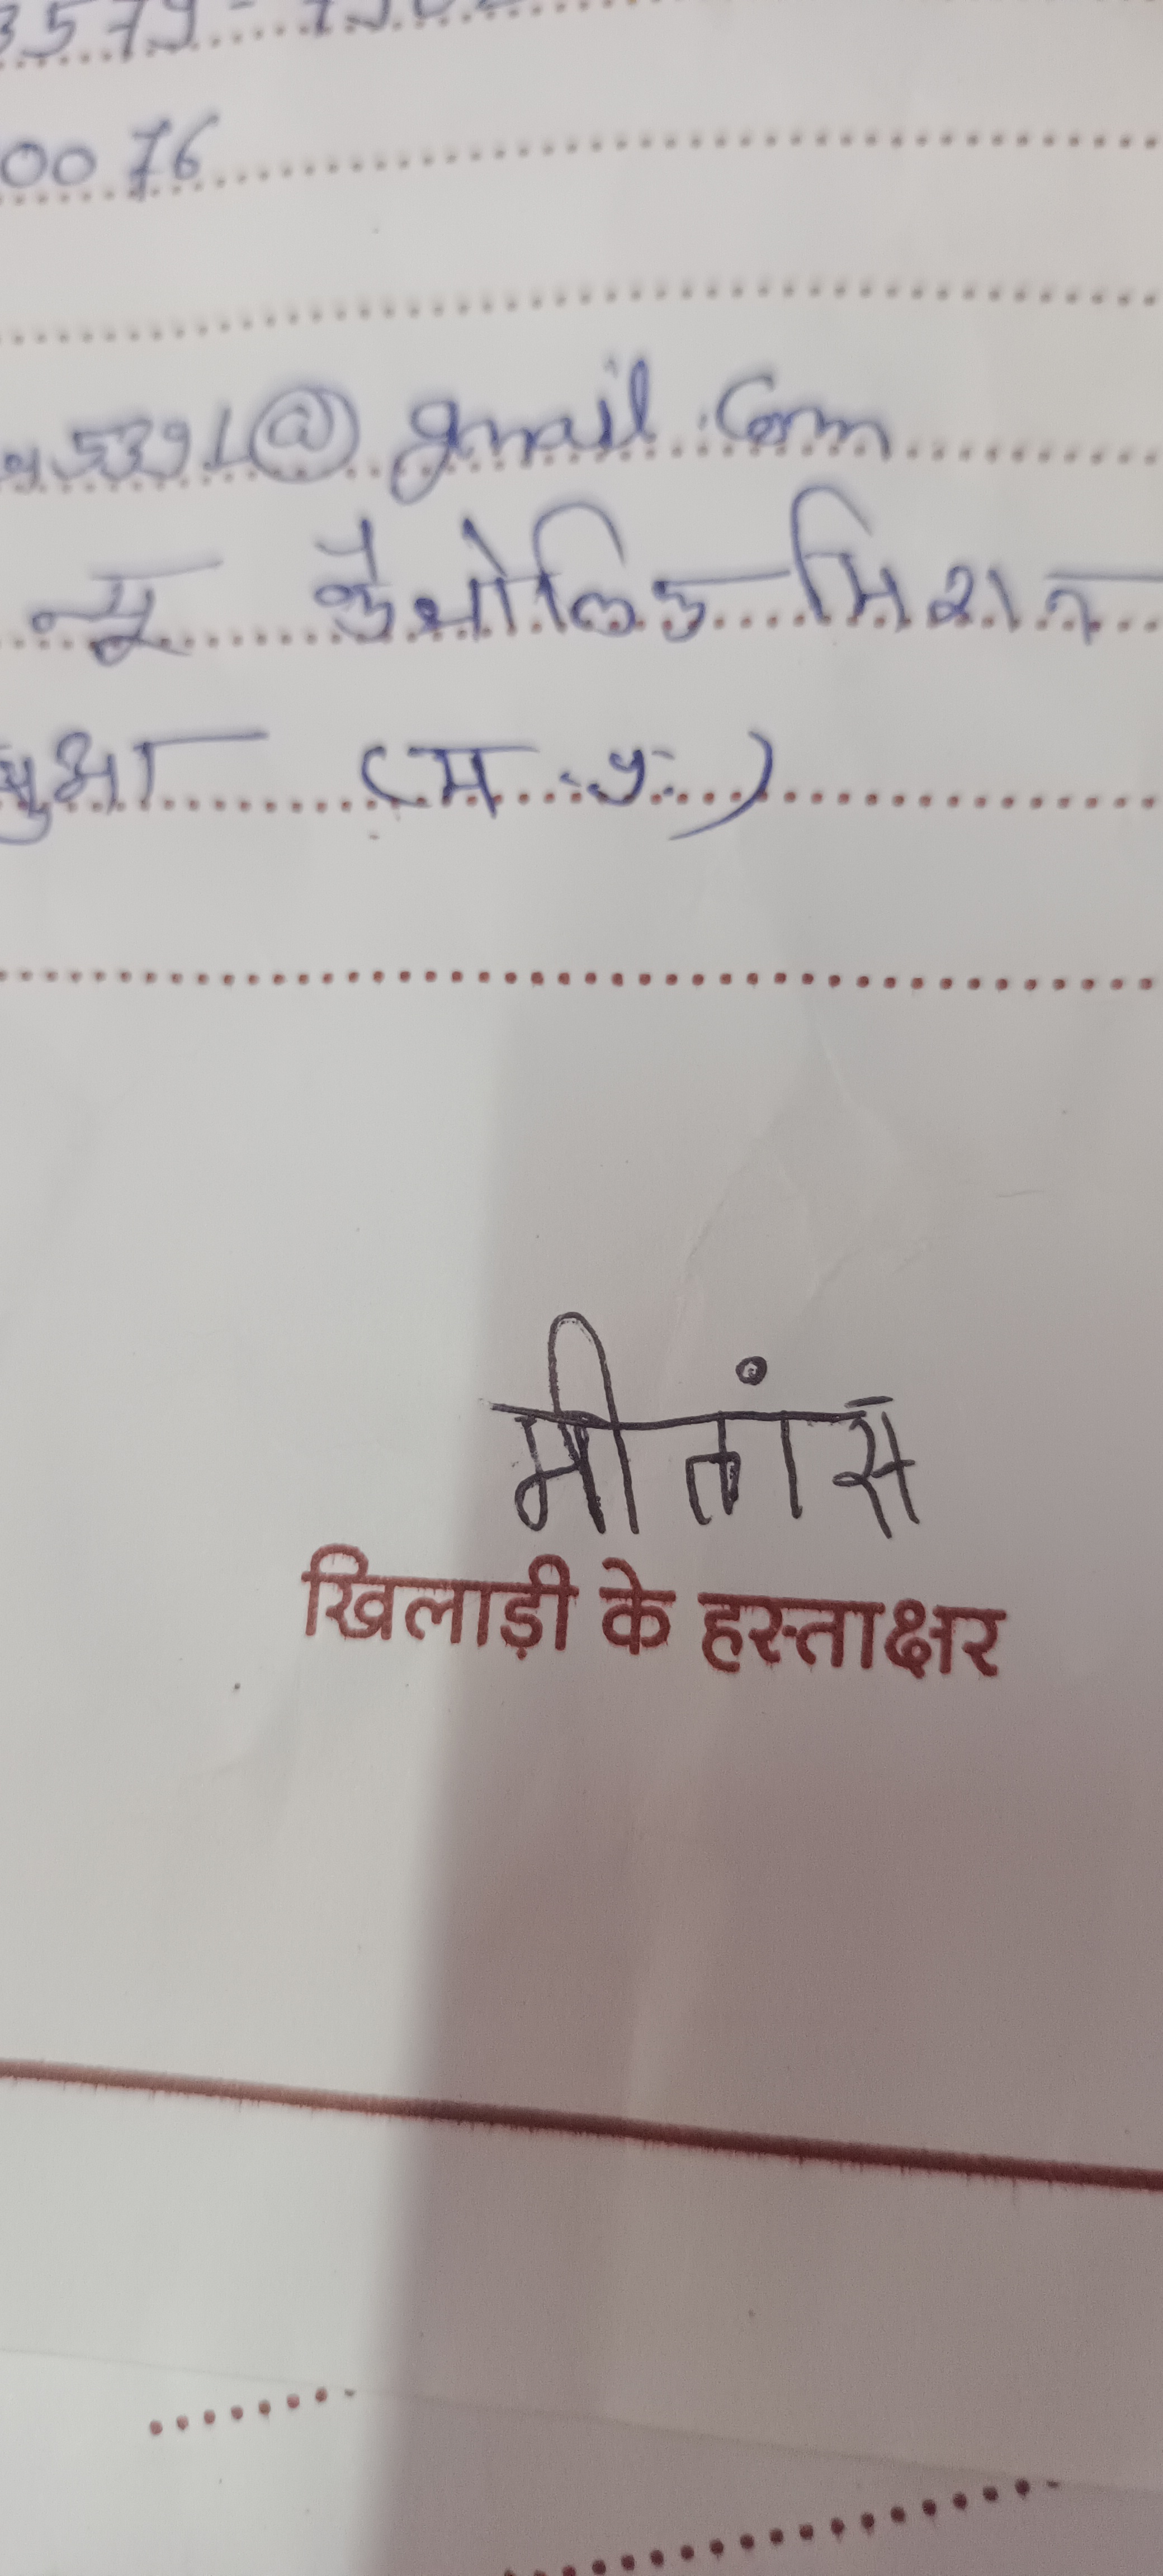 3579-
0076
5391@gmail.com
न्यू कैथोलिक मिशन
(म.प्र.)
मीतांस
खिलाड़ी के हस्ताक्षर